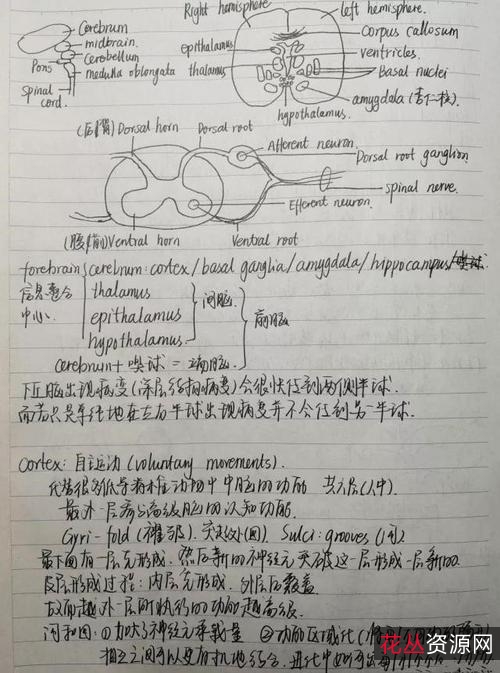 Right hemisphere
left hemisphere.
Cerebrum
midbrain.
Cerebellum
Pons
medulla oblongata
Spinal cord.
corpus callosum
epithalamus
ventricles.
thalamus
Basal nuclei
amygdala (杏仁核).
hypothalamus.
(后/背) Dorsal horn
Dorsal root
Afferent neuron.
Dorsal root ganglion
spinal nerve.
Efferent neuron.
(腹/前) Ventral horn
Ventral root
forebrain cerebrum: cortex / basal ganglia / amygdala / hippocampus / 嗅球.
信息整合 thalamus
中心. epithalamus 间脑.
hypothalamus 前脑
cerebrum + 嗅球 = 端脑.
出现病变 (深层结构病变) 会很快传到两侧半球.
在左右半球出现病变并不会传到另一半球.
Cortex: 自主运动 (voluntary movements).
中脑的功能 共六层 (人中)
最外一层参与高级脑的认知功能.
Gyri - fold (褶皱). Sulci: grooves (沟)
最下面有一层先形成. 然后新的神经元突破这一层形成一层新的
皮层形成过程: 内层先形成. 外层后覆盖
故而越外层所执行的功能越高级.
沟和回: ① 加大了神经元承载量 ② 功能区域化
相互之间可以更有机地结合.
花丛资源网